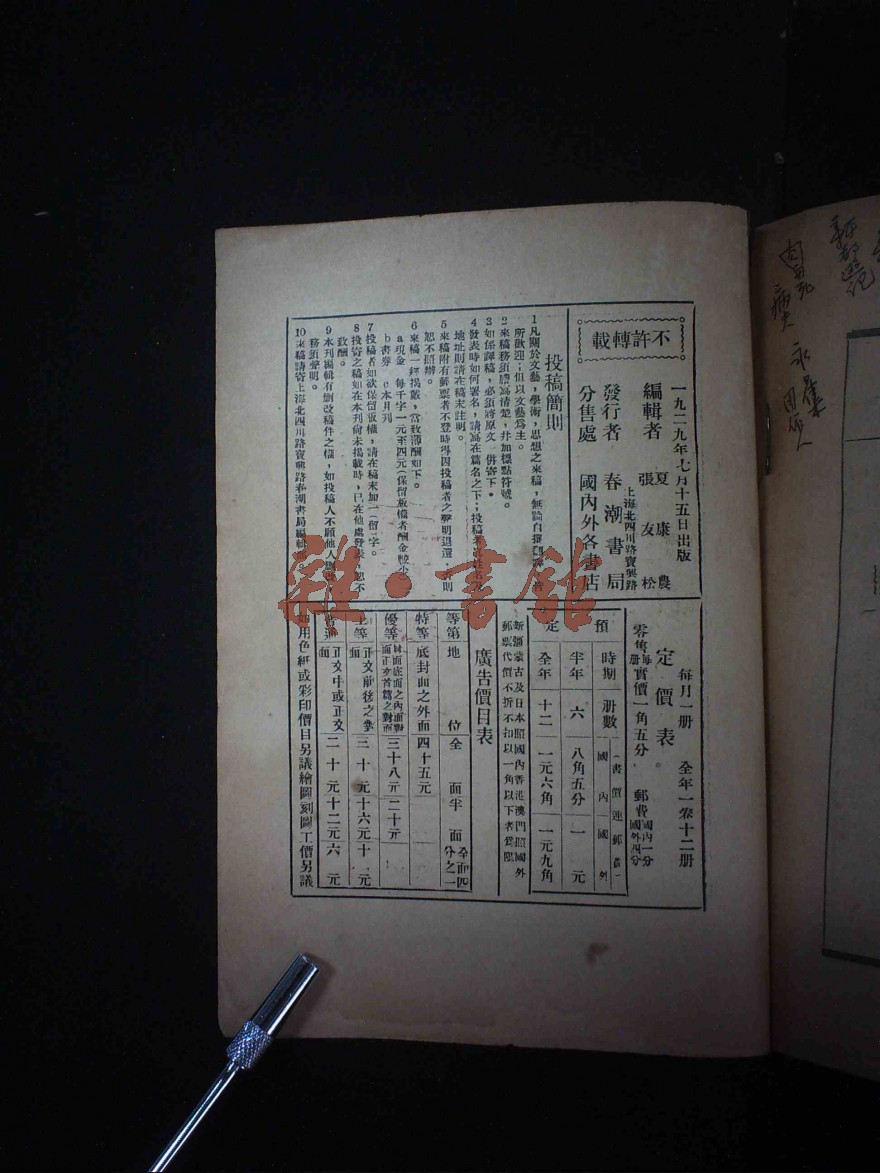 不許轉載
一九二九年七月十五日出版
編輯者 夏康農 張友松
上海北四川路寶興路
發行者 春潮書局
分售處 國內外各書店
投稿簡則
1凡關於文藝，學術，思想之來稿，無論自撰
所歡迎；但以文藝爲主。
2來稿務須謄寫清楚，幷加標點符號。
3如係譯稿，必須將原文一併寄下。
4發表時如何署名，請寫在篇名之下；投稿者
地址則請在稿末註明。
5來稿附有郵票者不登時得因投稿者之聲明退還，否則
恕不照辦。
6來稿一經揭載，當致薄酬如下。
a現金 每千字一元至四元（保留版權者酬金較少）
b書券 c本月刊
7投稿者如欲保留版權，請在稿末加一（留）字。
8投寄之稿如在本刊尙未揭載時，已在他處發表，恕不
致酬。
9本刊編輯有刪改稿件之權，如投稿人不願他人刪改
務須聲明。
10來稿請寄上海北四川路寶興路春潮書局編輯
每月一册 全年一卷十二册
定價表
零售每册實價一角五分 郵費國內一分國外四分
預定
時期 册數 （書價連郵費） 國內 國外
半年 六 八角五分 一元
全年 十二 一元六角 一元九角
新疆蒙古及日本照國內香港澳門照國外
郵票代價不折不扣以一角以下者爲限
廣告價目表
等第 地位 全面 半面 全面四分之一
特等 底封面之外面 四十五元
優等 封面底面之內面對面正文首篇之對面 三十八元 二十元
上等 正文前後之對面 三十元 十六元 十一元
普通 正文中或正文 二十元 十二元 六元
如用色紙或彩印價目另議繪圖刻圖工價另議
雜·書館